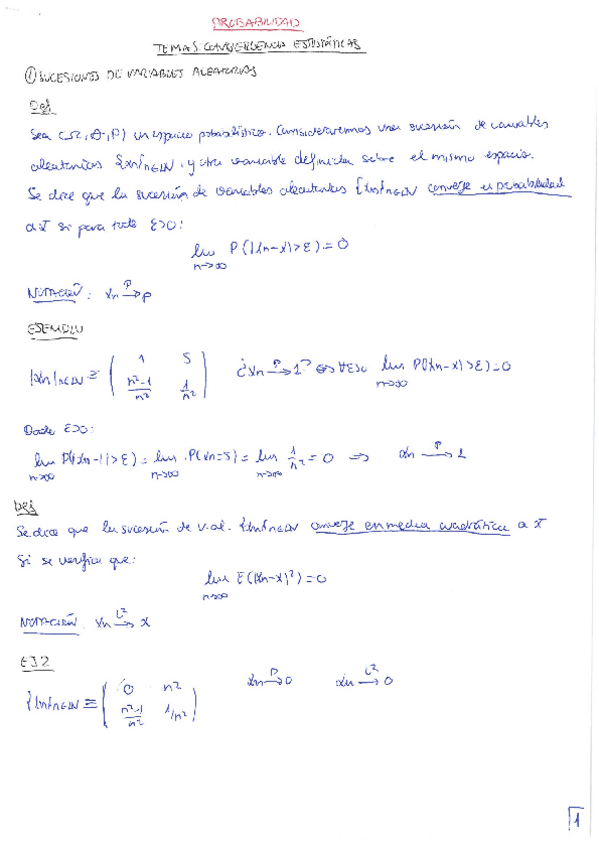 PROBABILIDAD
TEMA 5: CONVERGENCIA ESTOCÁSTICAS
① SUCESIONES DE VARIABLES ALEATORIAS
Def
Sea (Ω, A, P) un espacio probabilístico. Consideraremos una sucesión de variables
aleatorias {Xn}n∈ℕ, y otra variable definida sobre el mismo espacio.
Se dice que la sucesión de variables aleatorias {Xn}n∈ℕ converge en probabilidad
a X si para todo ε>0:
lim P(|Xn-X|>ε)=0
n→∞
NOTACIÓN: Xn →ᴾ p
EJEMPLO
{Xn}n∈ℕ ≡ ( 1 5
n²-1/n² 1/n² ) ¿Xn →ᴾ 1? ⇔ ∀ε>0 lim P(|Xn-X|>ε)=0
n→∞
Dado ε>0:
lim P(|Xn-1|>ε) = lim P(Xn=5) = lim 1/n² = 0 ⇒ Xn →ᴾ 1
n→∞ n→∞ n→∞
Def
Se dice que la sucesión de v.al. {Xn}n∈ℕ converge en media cuadrática a X
si se verifica que:
lim E(|Xn-X|²)=0
n→∞
NOTACIÓN: Xn →ᴸ² X
EJ 2
{Xn}n∈ℕ ≡ ( 0 n²
n²-1/n² 1/n² ) Xn →ᴾ 0 Xn →ᴸ² 0
1